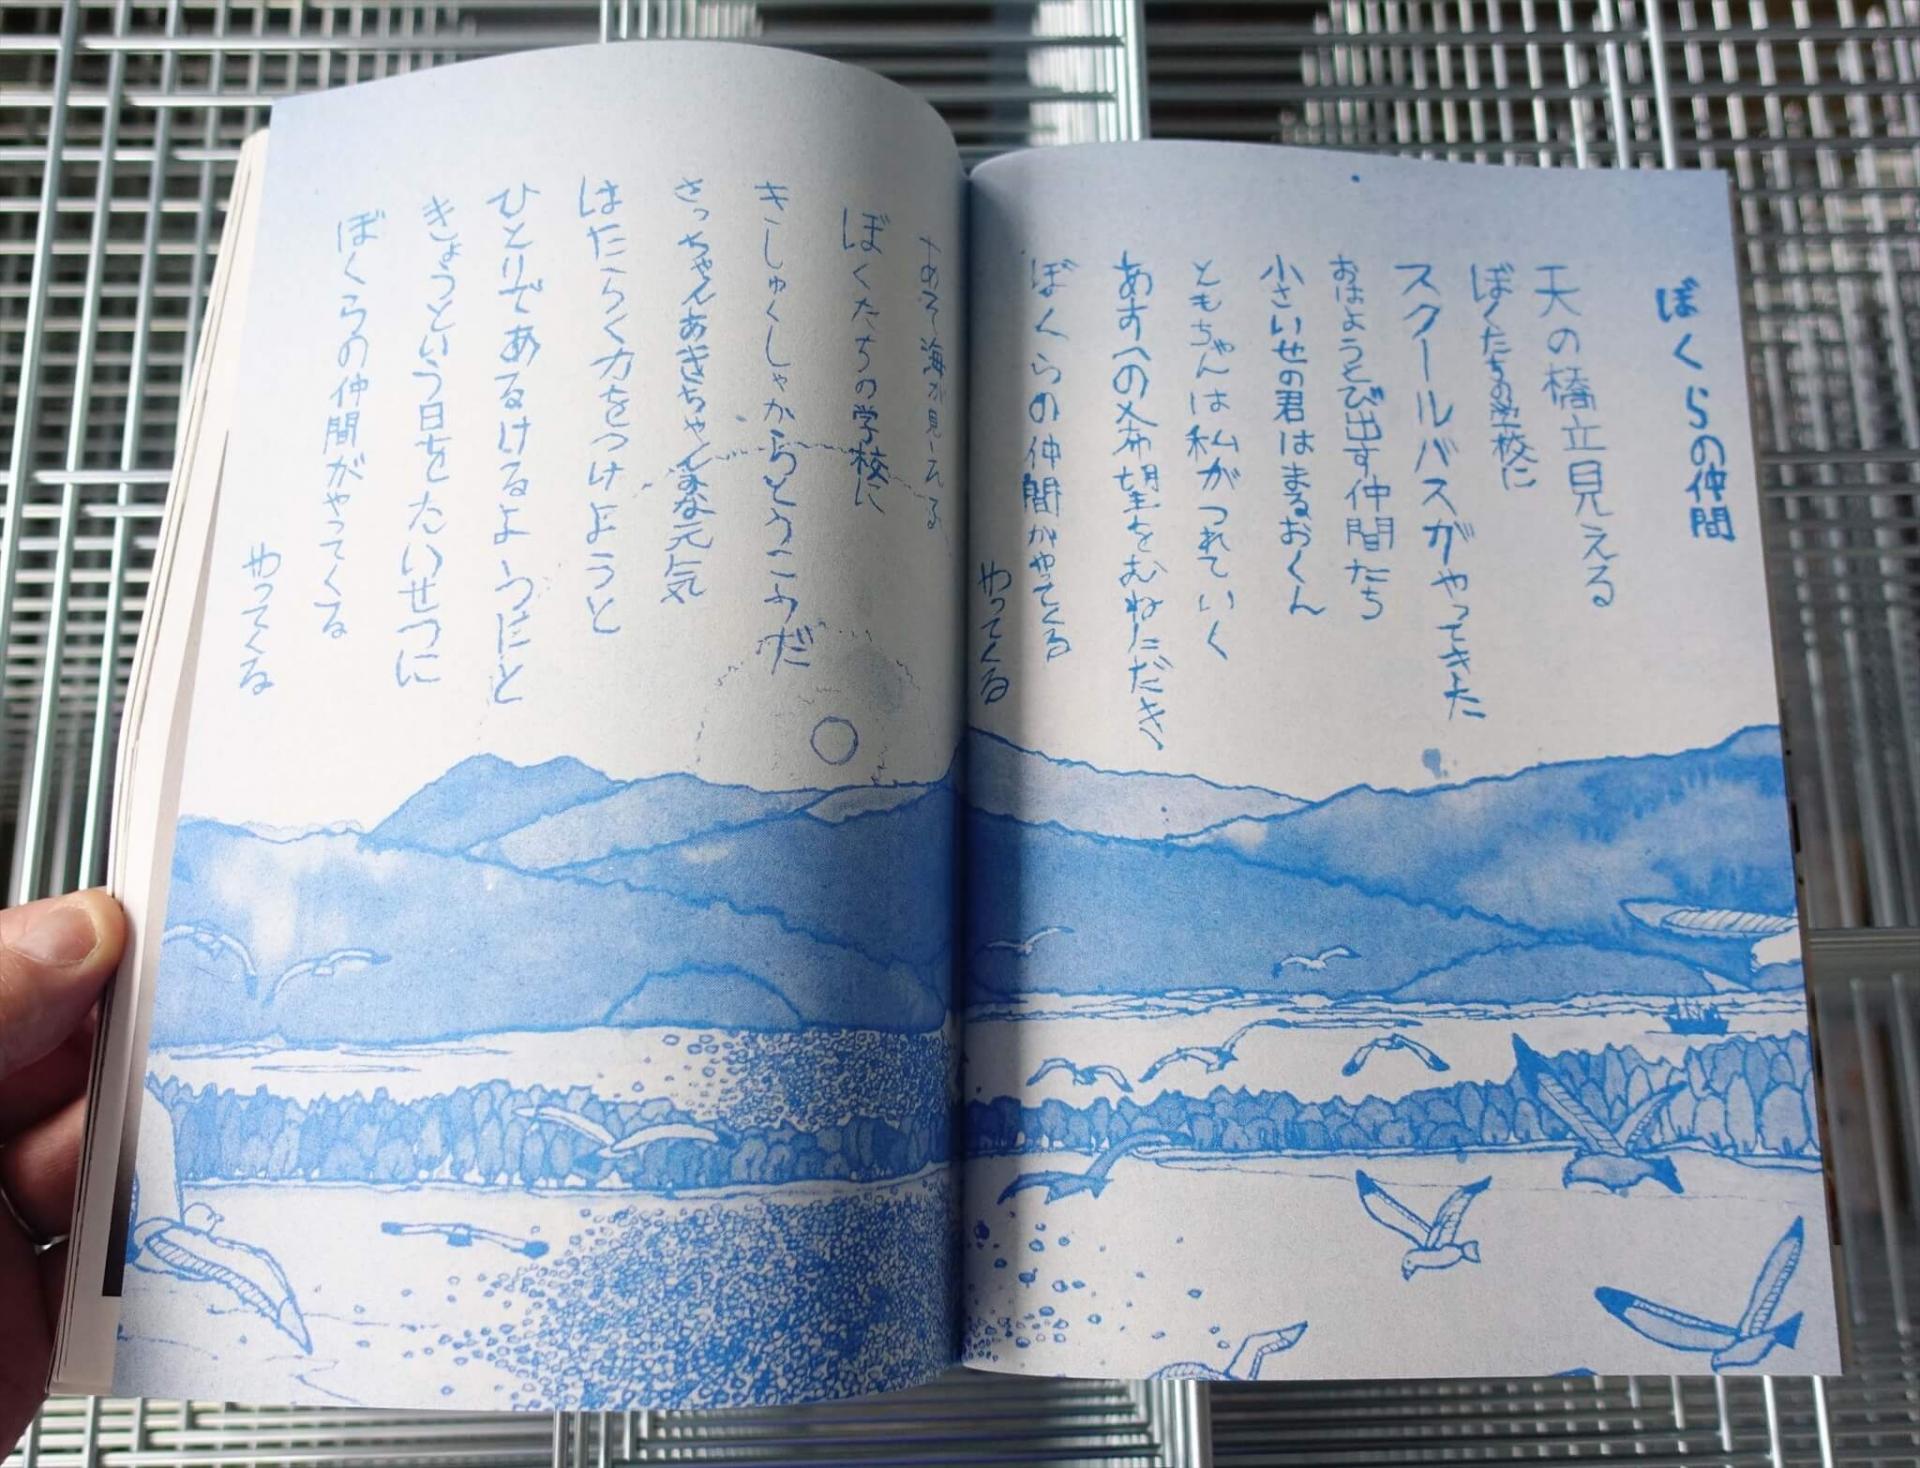 ぼくらの仲間
天の橋立見える
ぼくたちの学校に
スクールバスがやってきた
おはようとび出す仲間たち
小さいせの君はまるおくん
ともちゃんは私がつれていく
あすへの希望をむねにだき
ぼくらの仲間がやってくる
やってくる
海が見える
ぼくたちの学校に
きしゅくしゃからとうこうだ
さっちゃんあきちゃんみな元気
はたらく力をつけようと
ひとりであるけるようにと
きょうという日をたいせつに
ぼくらの仲間がやってくる
やってくる